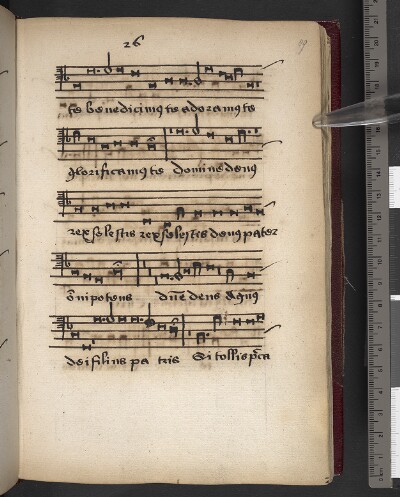 26
te benedicimus te adoramus te
glorificamus te domine deus
rex celestis rex celestis deus pater
o̅nipotens dn̅e deus agnus
dei filius pa tris Qui tollis pc̅ca